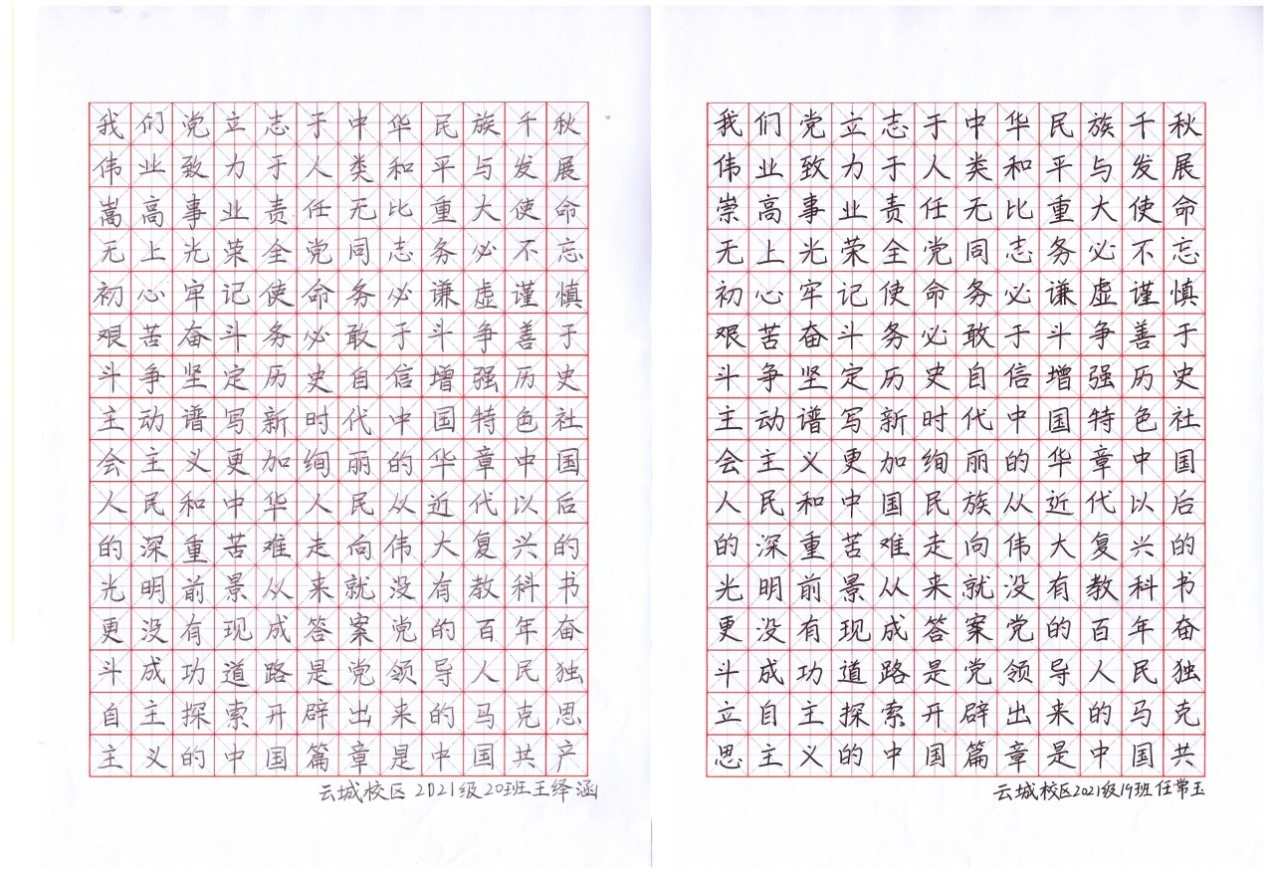 我们党立志于中华民族千秋
伟业致力于人类和平与发展
嵩高事业责任无比重大使命
无上光荣全党同志务必不忘
初心牢记使命务必谦虚谨慎
艰苦奋斗务必敢于斗争善于
斗争坚定历史自信增强历史
主动谱写新时代中国特色社
会主义更加绚丽的华章中国
人民和中华人民从近代以后
的深重苦难走向伟大复兴的
光明前景从来就没有教科书
更没有现成答案党的百年奋
斗成功道路是党领导人民独
自主探索开辟出来的马克思
主义的中国篇章是中国共产
云城校区 2021级20班王绎涵
我们党立志于中华民族千秋
伟业致力于人类和平与发展
崇高事业责任无比重大使命
无上光荣全党同志务必不忘
初心牢记使命务必谦虚谨慎
艰苦奋斗务必敢于斗争善于
斗争坚定历史自信增强历史
主动谱写新时代中国特色社
会主义更加绚丽的华章中国
人民和中国民族从近代以后
的深重苦难走向伟大复兴的
光明前景从来就没有教科书
更没有现成答案党的百年奋
斗成功道路是党领导人民独
立自主探索开辟出来的马克
思主义的中国篇章是中国共
云城校区2021级19班任常玉